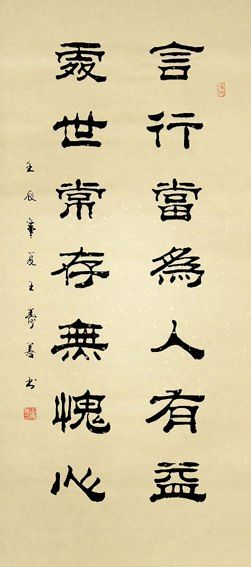 言行當為人有益
處世常存無愧心
壬辰年夏王壽善书